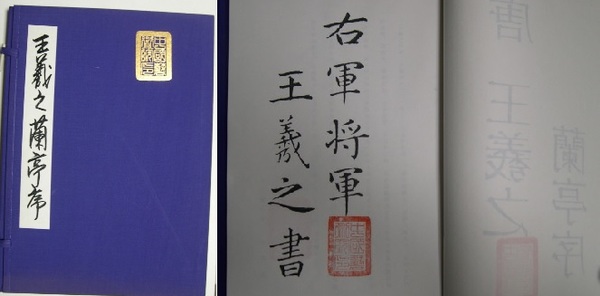 王羲之蘭亭序
右軍将軍
王羲之書
唐 王羲之
蘭亭序